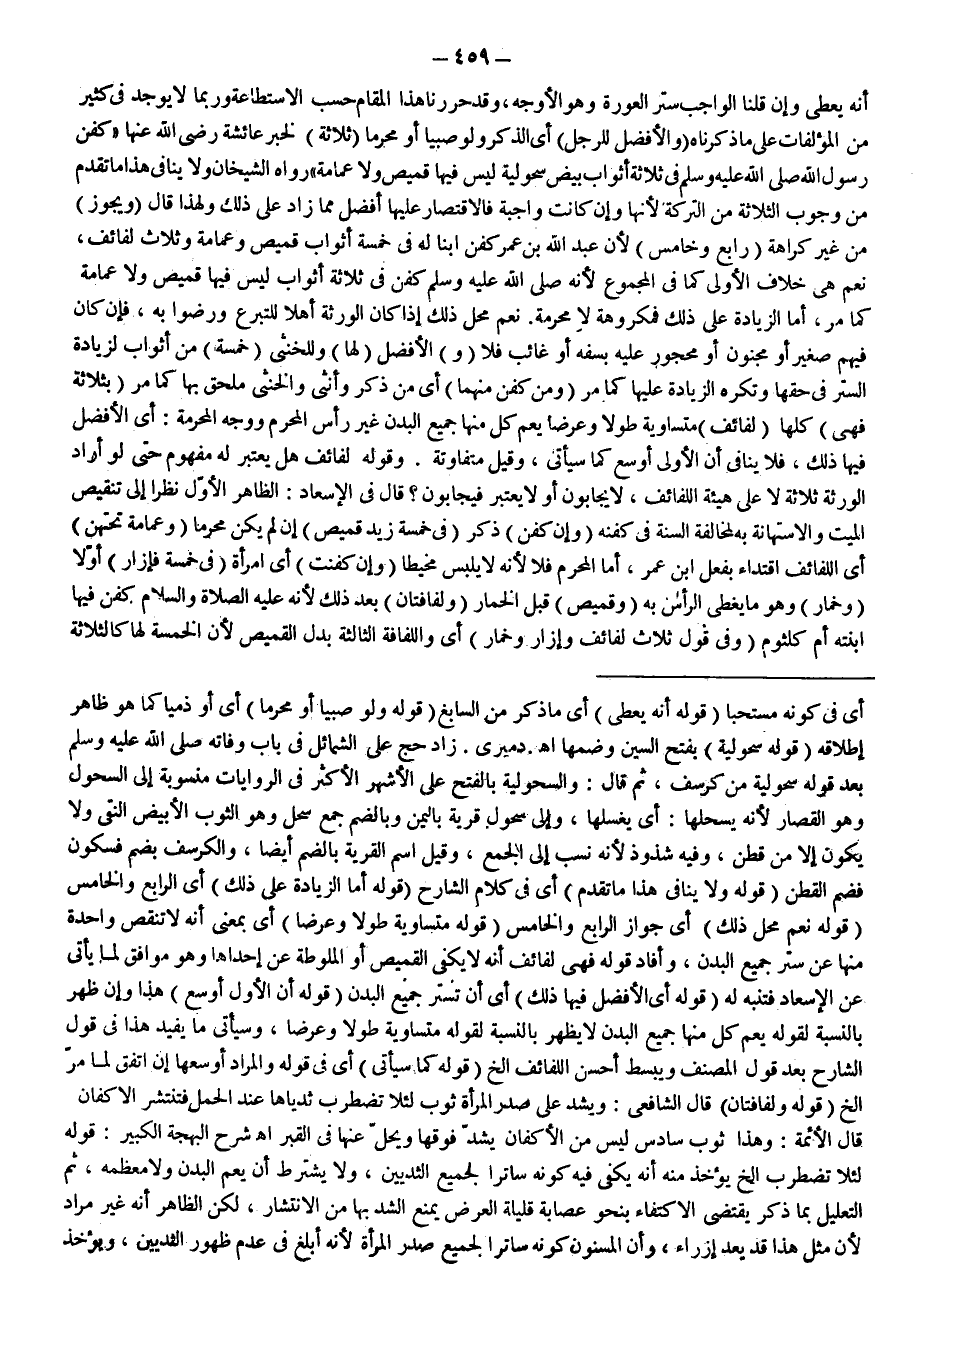 — ٤٥٩ —
أنه يعطى وإن قلنا الواجب ستر العورة وهو الأوجه، وقد حررنا هذا المقام حسب الاستطاعة وربما لا يوجد فى كثير
من المؤلفات على ما ذكرناه (والأفضل للرجل) أى الذكر ولو صبيا أو محرما (ثلاثة) لخبر عائشة رضى الله عنها «كفن
رسول الله صلى الله عليه وسلم فى ثلاثة أثواب بيض سحولية ليس فيها قميص ولا عمامة» رواه الشيخان ولا ينافى هذا ما تقدم
من وجوب الثلاثة من التركة لأنها وإن كانت واجبة فالاقتصار عليها أفضل مما زاد على ذلك ولهذا قال (ويجوز)
من غير كراهة (رابع وخامس) لأن عبد الله بن عمر كفن ابنا له فى خمسة أثواب قميص وعمامة وثلاث لفائف،
نعم هى خلاف الأولى كما فى المجموع لأنه صلى الله عليه وسلم كفن فى ثلاثة أثواب ليس فيها قميص ولا عمامة
كما مر، أما الزيادة على ذلك فمكروهة لا محرمة. نعم محل ذلك إذا كان الورثة أهلا للتبرع ورضوا به، فإن كان
فيهم صغير أو مجنون أو محجور عليه بسفه أو غائب فلا (و) الأفضل (لها) وللخنثى (خمسة) من أثواب لزيادة
الستر فى حقها وتكره الزيادة عليها كما مر (ومن كفن منهما) أى من ذكر وأنثى والخنثى ملحق بها كما مر (بثلاثة
فهى) كلها (لفائف) متساوية طولا وعرضا يعم كل منها جميع البدن غير رأس المحرم ووجه المحرمة : أى الأفضل
فيها ذلك، فلا ينافى أن الأولى أوسع كما سيأتى، وقيل متفاوتة . وقوله لفائف هل يعتبر له مفهوم حتى لو أراد
الورثة ثلاثة لا على هيئة اللفائف، لا يجابون أو لا يعتبر فيجابون؟ قال فى الإسعاد : الظاهر الأوّل نظرا إلى تنقيص
الميت والاستهانة به لمخالفة السنة فى كفنه (وإن كفن) ذكر (فى خمسة زيد قميص) إن لم يكن محرما (وعمامة تحتهن)
أى اللفائف اقتداء بفعل ابن عمر، أما المحرم فلا لأنه لا يلبس مخيطا (وإن كفنت) أى امرأة (فى خمسة فإزار) أوّلا
(وخمار) وهو ما يغطى الرأس به (وقميص) قبل الخمار (ولفافتان) بعد ذلك لأنه عليه الصلاة والسلام كفن فيها
ابنته أم كلثوم (وفى قول ثلاث لفائف وإزار وخمار) أى واللفافة الثالثة بدل القميص لأن الخمسة لها كالثلاثة
أى فى كونه مستحبا (قوله أنه يعطى) أى ما ذكر من السابغ (قوله ولو صبيا أو محرما) أى أو ذميا كما هو ظاهر
إطلاقه (قوله سحولية) بفتح السين وضمها اه. دميرى. زاد حج على الشمائل فى باب وفاته صلى الله عليه وسلم
بعد قوله سحولية من كرسف، ثم قال : والسحولية بالفتح على الأشهر الأكثر فى الروايات منسوبة إلى السحول
وهو القصار لأنه يسحلها : أى يغسلها، وإلى سحول قرية باليمن وبالضم جمع سحل وهو الثوب الأبيض النقى ولا
يكون إلا من قطن، وفيه شذوذ لأنه نسب إلى الجمع، وقيل اسم القرية بالضم أيضا، والكرسف بضم فسكون
فضم القطن (قوله ولا ينافى هذا ما تقدم) أى فى كلام الشارح (قوله أما الزيادة على ذلك) أى الرابع والخامس
(قوله نعم محل ذلك) أى جواز الرابع والخامس (قوله متساوية طولا وعرضا) أى بمعنى أنه لا تنقص واحدة
منها عن ستر جميع البدن، وأفاد قوله فهى لفائف أنه لا يكفى القميص أو الملوطة عن إحداها وهو موافق لما يأتى
عن الإسعاد فتنبه له (قوله أى الأفضل فيها ذلك) أى أن تستر جميع البدن (قوله أن الأول أوسع) هذا وإن ظهر
بالنسبة لقوله يعم كل منها جميع البدن لا يظهر بالنسبة لقوله متساوية طولا وعرضا، وسيأتى ما يفيد هذا فى قول
الشارح بعد قول المصنف ويبسط أحسن اللفائف الخ (قوله كما سيأتى) أى فى قوله والمراد أوسعها إن اتفق لما مرّ
الخ (قوله ولفافتان) قال الشافعى : ويشد على صدر المرأة ثوب لئلا تضطرب ثدياها عند الحمل فتنتشر الاكفان
قال الأئمة : وهذا ثوب سادس ليس من الأكفان يشدّ فوقها ويحلّ عنها فى القبر اه شرح البهجة الكبير : قوله
لئلا تضطرب الخ يؤخذ منه أنه يكفى فيه كونه ساترا لجميع الثديين، ولا يشترط أن يعم البدن ولا معظمه، ثم
التعليل بما ذكر يقتضى الاكتفاء بنحو عصابة قليلة العرض يمنع الشد بها من الانتشار، لكن الظاهر أنه غير مراد
لأن مثل هذا قد يعد إزراء، وأن المسنون كونه ساترا لجميع صدر المرأة لأنه أبلغ فى عدم ظهور الثديين، ويؤخذ